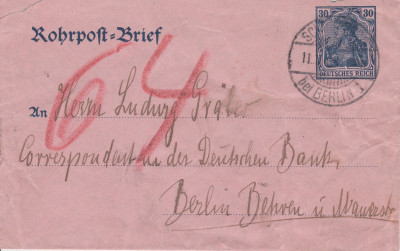 30 30
Rohrpost-Brief
DEUTSCHES REICH
11.
bei BERLIN 1
64
An Herrn Ludwig
Correspondent in der Deutschen Bank,
Berlin Behren u Mauerstr